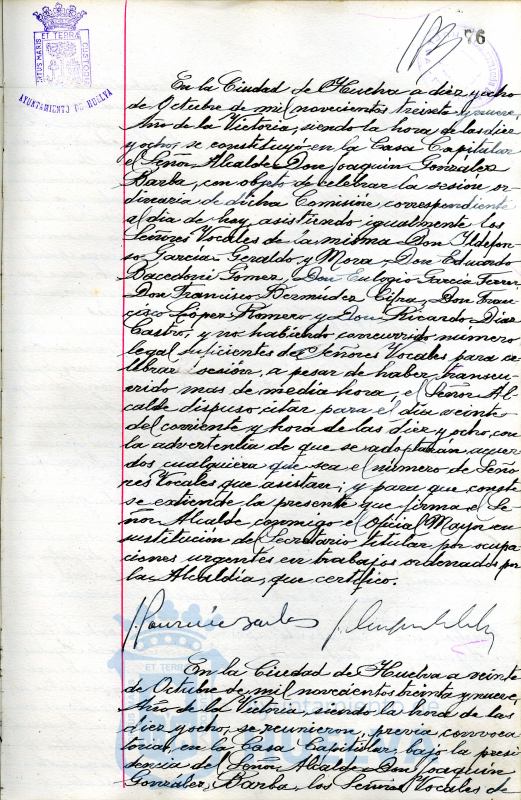 76
ET TERRA
CUSTODIT
AYUNTAMIENTO DE HUELVA
En la Ciudad de Huelva a diez y ocho
de Octubre de mil novecientos treinta y nueve,
Año de la Victoria, siendo la hora de las diez
y ocho, se constituyó en la Casa Capitular
el Señor Alcalde Don Joaquín González
Barba, con objeto de celebrar la sesion or-
dinaria de dicha Comisión correspondiente
al día de hoy, asistiendo igualmente los
Señores Vocales de la misma Don Ildefon-
so García Geraldo y Mora, Don Eduardo
Bacedoni Gómez, Don Eulogio García Ferrer,
Don Francisco Bermudez Cifra, Don Fran-
cisco López Romero y Don Ricardo Díaz
Castro; y no habiendo concurrido número
legal suficientes de Señores Vocales para ce-
lebrar sesión, a pesar de haber transcu-
rrido mas de media hora, el Señor Al-
calde dispuso citar para el día veinte
del corriente y hora de las diez y ocho, con
la advertentia de que se adoptarán acuer-
dos cualquiera que sea el número de Seño-
res Vocales que asistan; y para que conste
se extiende la presente que firma el Se-
ñor Alcalde, conmigo el Oficial Mayor en
sustitución del Secretario titular por ocupa-
ciones urgentes en trabajos ordenados por
la Alcaldía, que certifico.
En la Ciudad de Huelva a veinte
de Octubre de mil novecientos treinta y nueve,
Año de la Victoria, siendo la hora de las
diez y ocho, se reunieron, previa convoca-
toria, en la Casa Capitular, bajo la presi-
dencia del Señor Alcalde Don Joaquín
González Barba, los Señores Vocales de